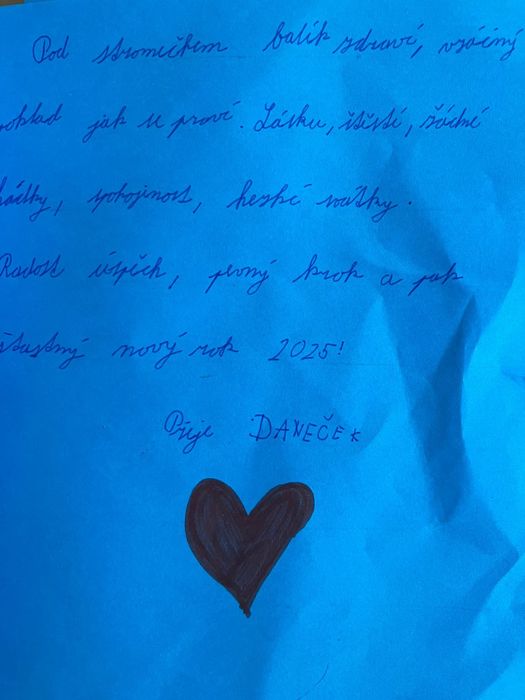 Pod stromečkem balík zdraví, vzácný
poklad jak se praví. Lásku, štěstí, žádné
hádky, spokojenost, hezké svátky.
Radost úspěch, pevný krok a pak
šťastný nový rok 2025!
Přeje DANEČEK